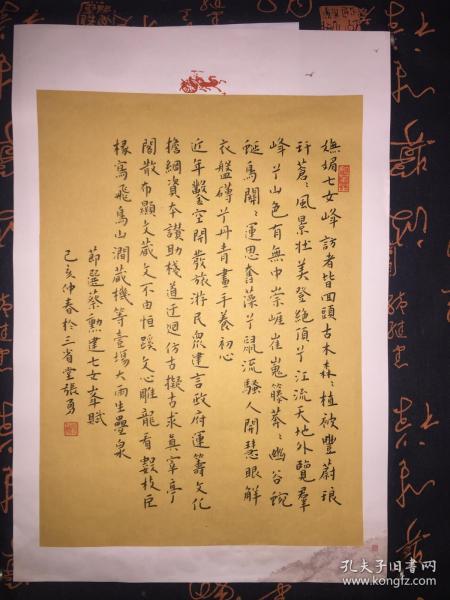 嫵媚七女峰訪者皆回頭古木森森植被豐蔚琅
玕蒼蒼風景壯美登絕頂兮江流天地外覽群
峰兮山色有無中崇崖崔嵬藤莽莽幽谷蜿
蜒鳥關關運思奮藻兮風流騷人開慧眼解
衣盤礴兮丹青畫手養初心
近年鑿空開發旅游民眾建言政府運籌文化
擔綱資本讚助棧道迂迴仿古擬古求真宰亭
閣散布顯文藏文不由恒蹊文心雕龍看數枝臣
椽寫飛鳥山澗藏機等臺場大雨生疊泉
節選蔡勳建七女峯賦
己亥仲春於三省堂張勇
孔夫子旧书网
www.kongfz.com